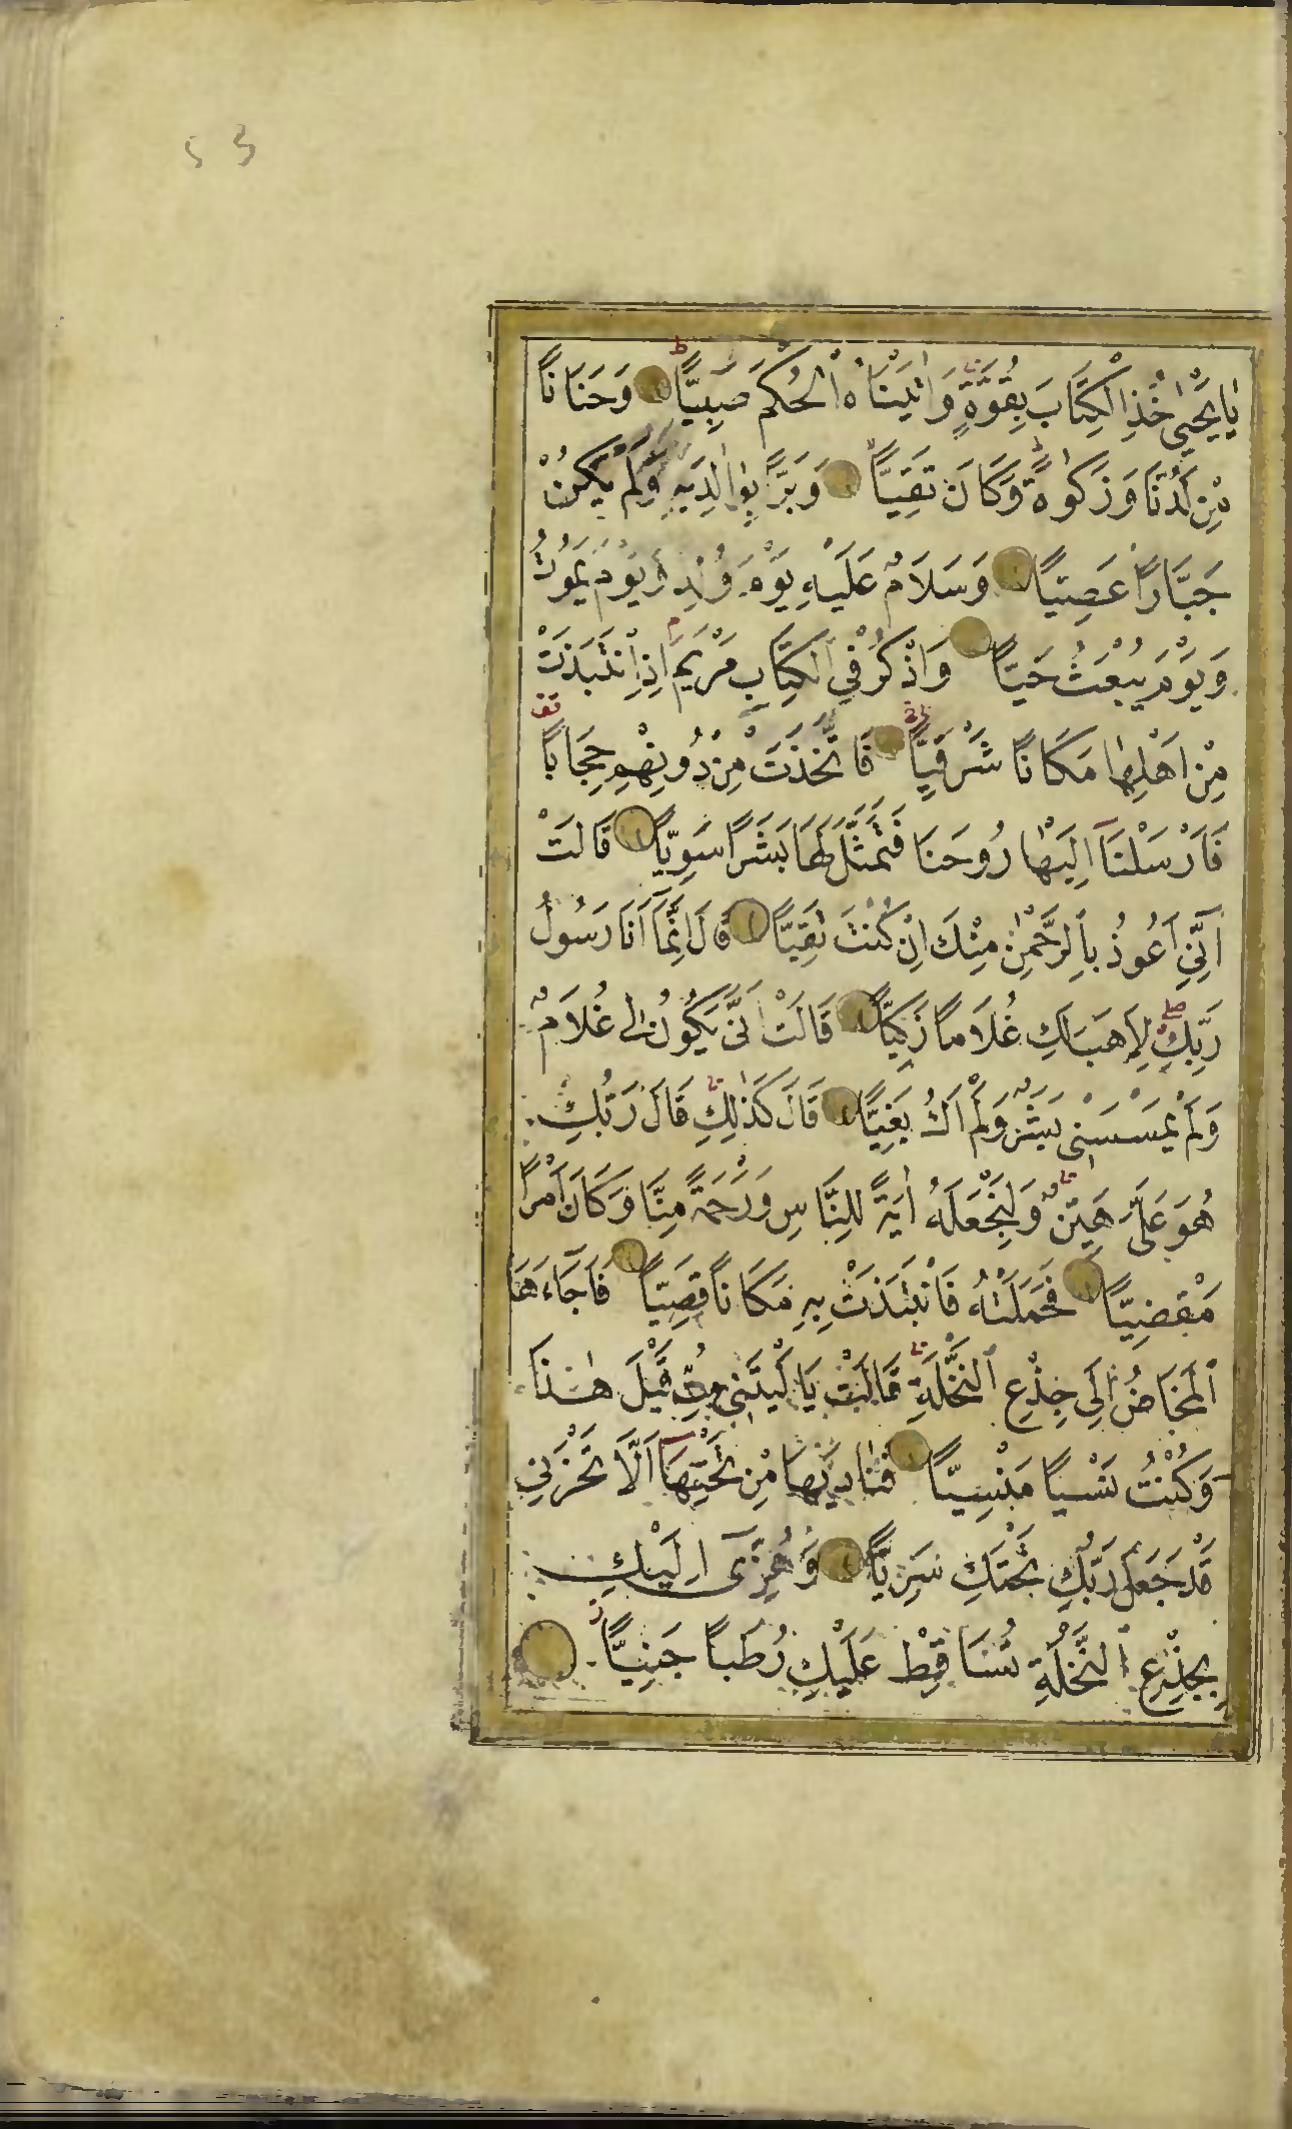 53
يَا يَحْيٰى خُذِ الْكِتَابَ بِقُوَّةٍ وَاٰتَيْنَاهُ الْحُكْمَ صَبِيًّا وَحَنَانًا
مِنْ لَدُنَّا وَزَكٰوةً وَكَانَ تَقِيًّا وَبَرًّا بِوَالِدَيْهِ وَلَمْ يَكُنْ
جَبَّارًا عَصِيًّا وَسَلَامٌ عَلَيْهِ يَوْمَ وُلِدَ وَيَوْمَ يَمُوتُ
وَيَوْمَ يُبْعَثُ حَيًّا وَاذْكُرْ فِي الْكِتَابِ مَرْيَمَ اِذِ انْتَبَذَتْ
مِنْ اَهْلِهَا مَكَانًا شَرْقِيًّا فَاتَّخَذَتْ مِنْ دُونِهِمْ حِجَابًا
فَاَرْسَلْنَآ اِلَيْهَا رُوحَنَا فَتَمَثَّلَ لَهَا بَشَرًا سَوِيًّا قَالَتْ
اِنِّي اَعُوذُ بِالرَّحْمٰنِ مِنْكَ اِنْ كُنْتَ تَقِيًّا قَالَ اِنَّمَآ اَنَا رَسُولُ
رَبِّكِ لِاَهَبَ لَكِ غُلَامًا زَكِيًّا قَالَتْ اَنّٰى يَكُونُ لِي غُلَامٌ
وَلَمْ يَمْسَسْنِي بَشَرٌ وَلَمْ اَكُ بَغِيًّا قَالَ كَذٰلِكِ قَالَ رَبُّكِ
هُوَ عَلَيَّ هَيِّنٌ وَلِنَجْعَلَهُ اٰيَةً لِلنَّاسِ وَرَحْمَةً مِنَّا وَكَانَ اَمْرًا
مَقْضِيًّا فَحَمَلَتْهُ فَانْتَبَذَتْ بِهِ مَكَانًا قَصِيًّا فَاَجَآءَهَا
الْمَخَاضُ اِلَى جِذْعِ النَّخْلَةِ قَالَتْ يَا لَيْتَنِي مِتُّ قَبْلَ هٰذَا
وَكُنْتُ نَسْيًا مَنْسِيًّا فَنَادٰيهَا مِنْ تَحْتِهَآ اَلَّا تَحْزَنِي
قَدْ جَعَلَ رَبُّكِ تَحْتَكِ سَرِيًّا وَهُزِّيٓ اِلَيْكِ
بِجِذْعِ النَّخْلَةِ تُسَاقِطْ عَلَيْكِ رُطَبًا جَنِيًّا